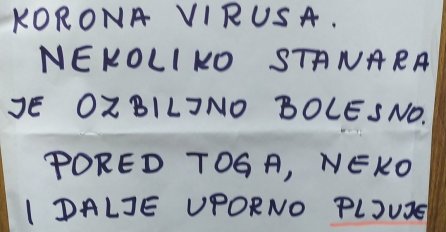 KORONA VIRUSA.
NEKOLIKO STANARA
JE OZBILJNO BOLESNO.
PORED TOGA, NEKO
I DALJE UPORNO PLJUJE